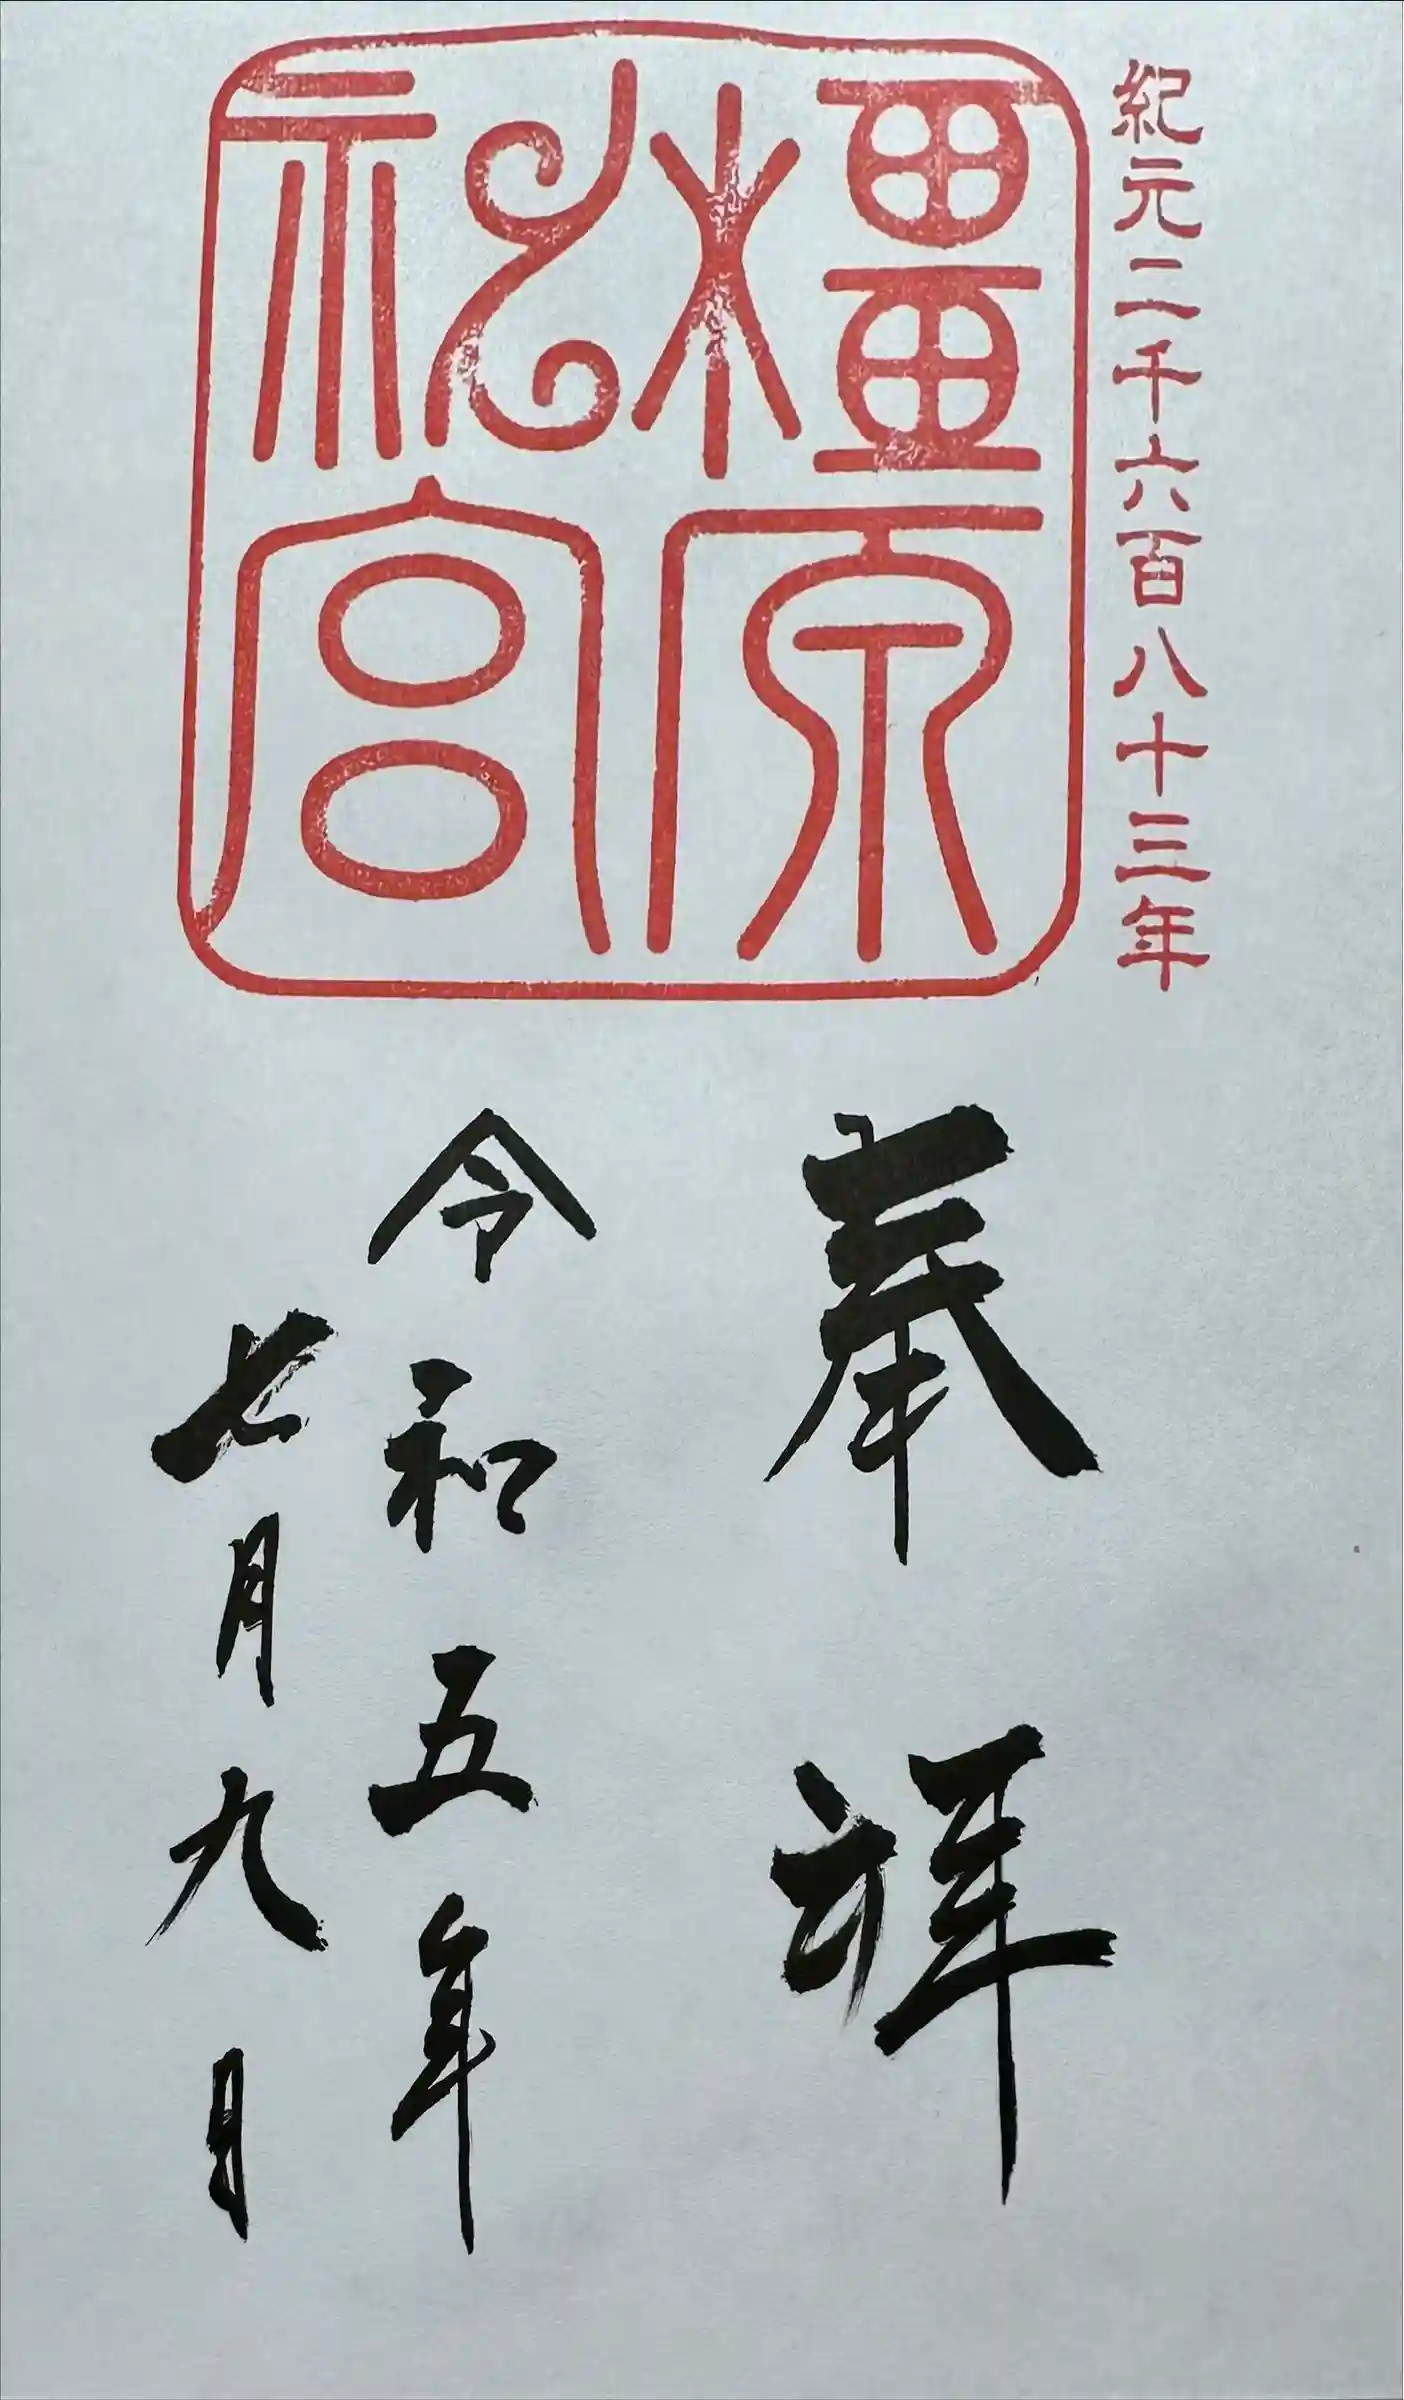 紀元二千六百八十三年
橿原
神宮
奉拝
令和五年
七月九日